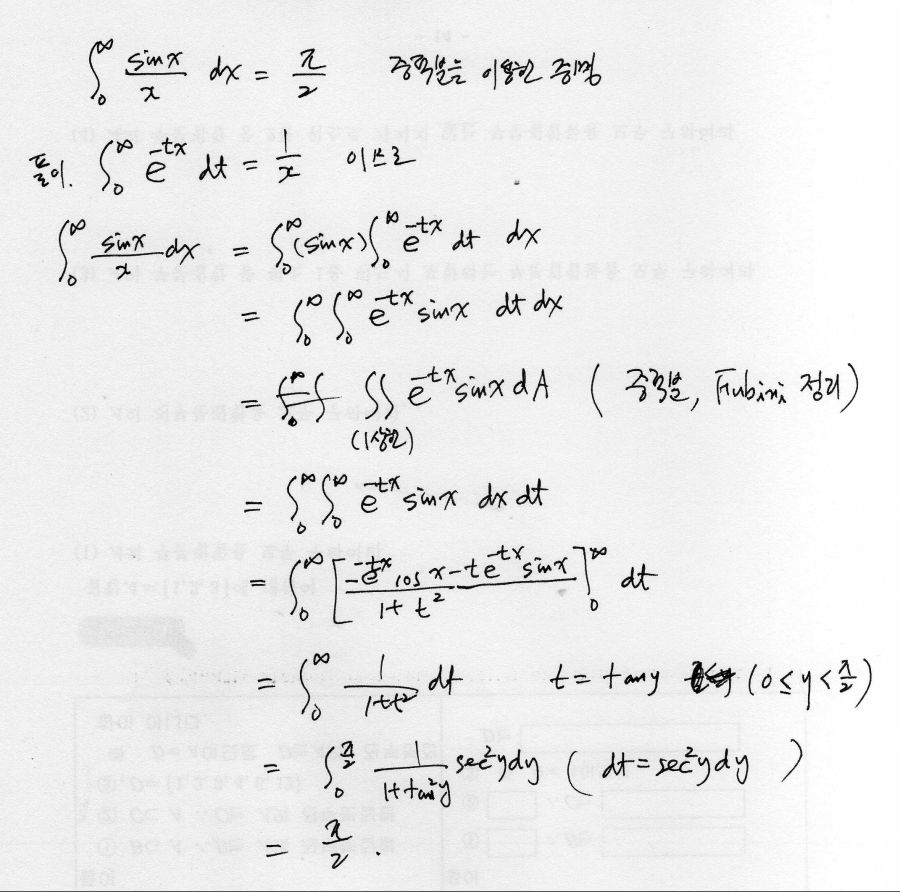 ∫₀^∞ sinx/x dx = π/2 중적분을 이용한 증명
풀이. ∫₀^∞ e^{-tx} dt = 1/x 이므로
∫₀^∞ sinx/x dx = ∫₀^∞ (sinx) ∫₀^∞ e^{-tx} dt dx
= ∫₀^∞ ∫₀^∞ e^{-tx} sinx dt dx
= ∬_(1상한) e^{-tx} sinx dA ( 중적분, Fubini 정리 )
= ∫₀^∞ ∫₀^∞ e^{-tx} sinx dx dt
= ∫₀^∞ [ (-e^{-tx} cos x - t e^{-tx} sinx) / (1+t²) ]₀^∞ dt
= ∫₀^∞ 1/(1+t²) dt t = tan y (0 ≤ y < π/2)
= ∫₀^{π/2} 1/(1+tan²y) sec²y dy ( dt = sec²y dy )
= π/2 .